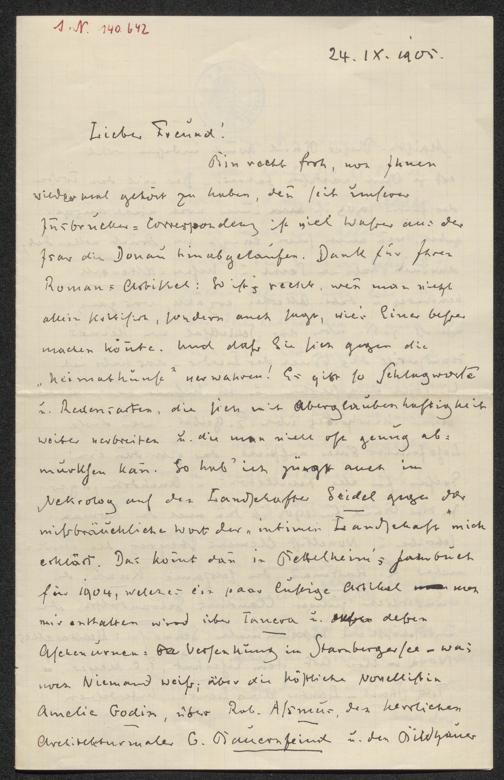 I. N. 140.642
24. IX. 1905.
Lieber Freund!
Bin recht froh, von Ihnen
wieder mal gehört zu haben, deñ seit unserer
Innsbrucker=Correspondenz ist viel Wasser aus der
Isar die Donau hinabgelaufen. Dank für Ihren
Roman=Artikel: So ist's recht, weñ man nicht
allein kritisirt, sondern auch sagt, wie's Einer besser
machen köñte. Und daß Sie sich gegen die
„Heimathkunst" verwahren! Es gibt so Schlagworte
u. Redensarten, die sich mit Aberglaubenhaftigkeit
weiter verbreiten u. die man nicht oft genug ab=
murksen kañ. So hab' ich jüngst auch im
Nekrolog auf den Landschafter Seidel gegen das
mißbräuchliche Wort der „intimen Landschaft" mich
erklärt. Das kom̃t dañ in Bettelheim's Jahrbuch
für 1904, welches ein paar lustige Artikel von
mir enthalten wird über Tanera u. deßen
Aschenurnen= Versenkung im Starnbergersee – was
noch Niemand weiß; über die köstliche Novellistin
Amelie Godin, über Rob. Aßmus, den herrlichen
Architekturmaler G. Bauernfeind u. den Bildhauer